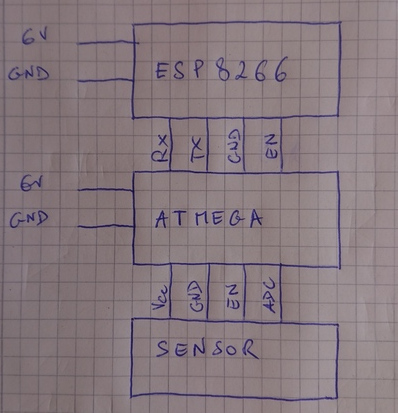 6V
GND
ESP8266
RX TX GND EN
6V
GND
ATMEGA
Vcc GND EN ADC
SENSOR